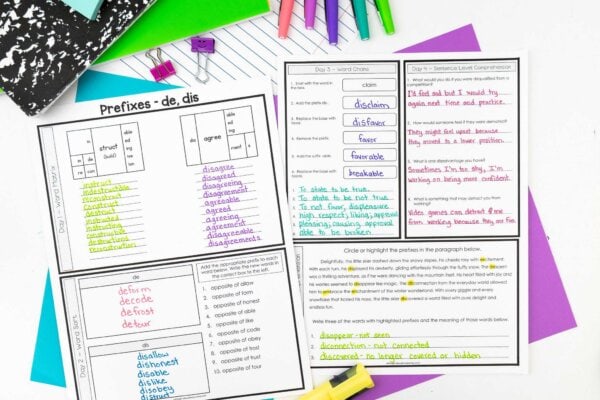 Prefixes - de, dis
Day 1 - Word Matrix
in
de
con
re
struct
(build)
able
ed
ing
ion
dis
agree
able
ed
ing
ment
s
instruct
indestructable
reconstruct
construct
destruct
instructed
instructing
constructible
destructing
disagree
disagreed
disagreeing
disagreement
agreeable
agreed
agreeing
agreement
disagreeable
disagreements
Day 2 - Word Sort
de
deform
decode
defrost
detour
dis
disallow
dishonest
disable
dislike
disobey
distrust
Add the appropriate prefix to each word below. Write the new words in the correct box to the left.
1. opposite of allow
2. opposite of form
3. opposite of honest
4. opposite of able
5. opposite of like
6. opposite of code
7. opposite of obey
8. opposite of frost
9. opposite of trust
10. opposite of tour
Day 3 - Word Chains
1. Start with the word in the frame.
claim
2. Add the prefix dis-.
disclaim
3. Replace the base with favor.
disfavor
4. Remove the prefix.
favor
5. Add the suffix -able.
favorable
6. Replace the base with break.
breakable
1. To state to be true.
2. To state to be not true.
3. To not favor, displeasure
4. high respect; liking; approval
5. pleasing; causing approval
6. able to be broken
Day 4 - Sentence Level Comprehension
1. What would you do if you were disqualified from a competition?
I'd feel sad but I would try
again next time and practice.
2. How would someone feel if they were demoted?
They might feel upset because
they moved to a lower position.
3. What is one disadvantage you have?
Sometimes I'm too shy, I'm
working on being more confident.
4. What is something that may detract you from working?
Video games can detract me
from working because they are fun.
Circle or highlight the prefixes in the paragraph below.
Delightfully, the little bear dashed down the snowy slopes. His cheeks rosy with excitement.
With each run, he displayed his dexterity, gliding effortlessly through the fluffy snow. The descent
was a thrilling adventure, as if he were dancing with the mountain itself. His heart filled with joy and
his worries seemed to disappear like magic. The disconnection from the everyday world allowed
him to embrace the enchantment of the winter wonderland. With every giggle and every
snowflake that kissed his nose, the little bear discovered a world filled with pure delight and
endless fun.
Write three of the words with highlighted prefixes and the meaning of those words below.
1. disappear - not seen
2. diconnection - not connected
3. discovered - no longer covered or hidden